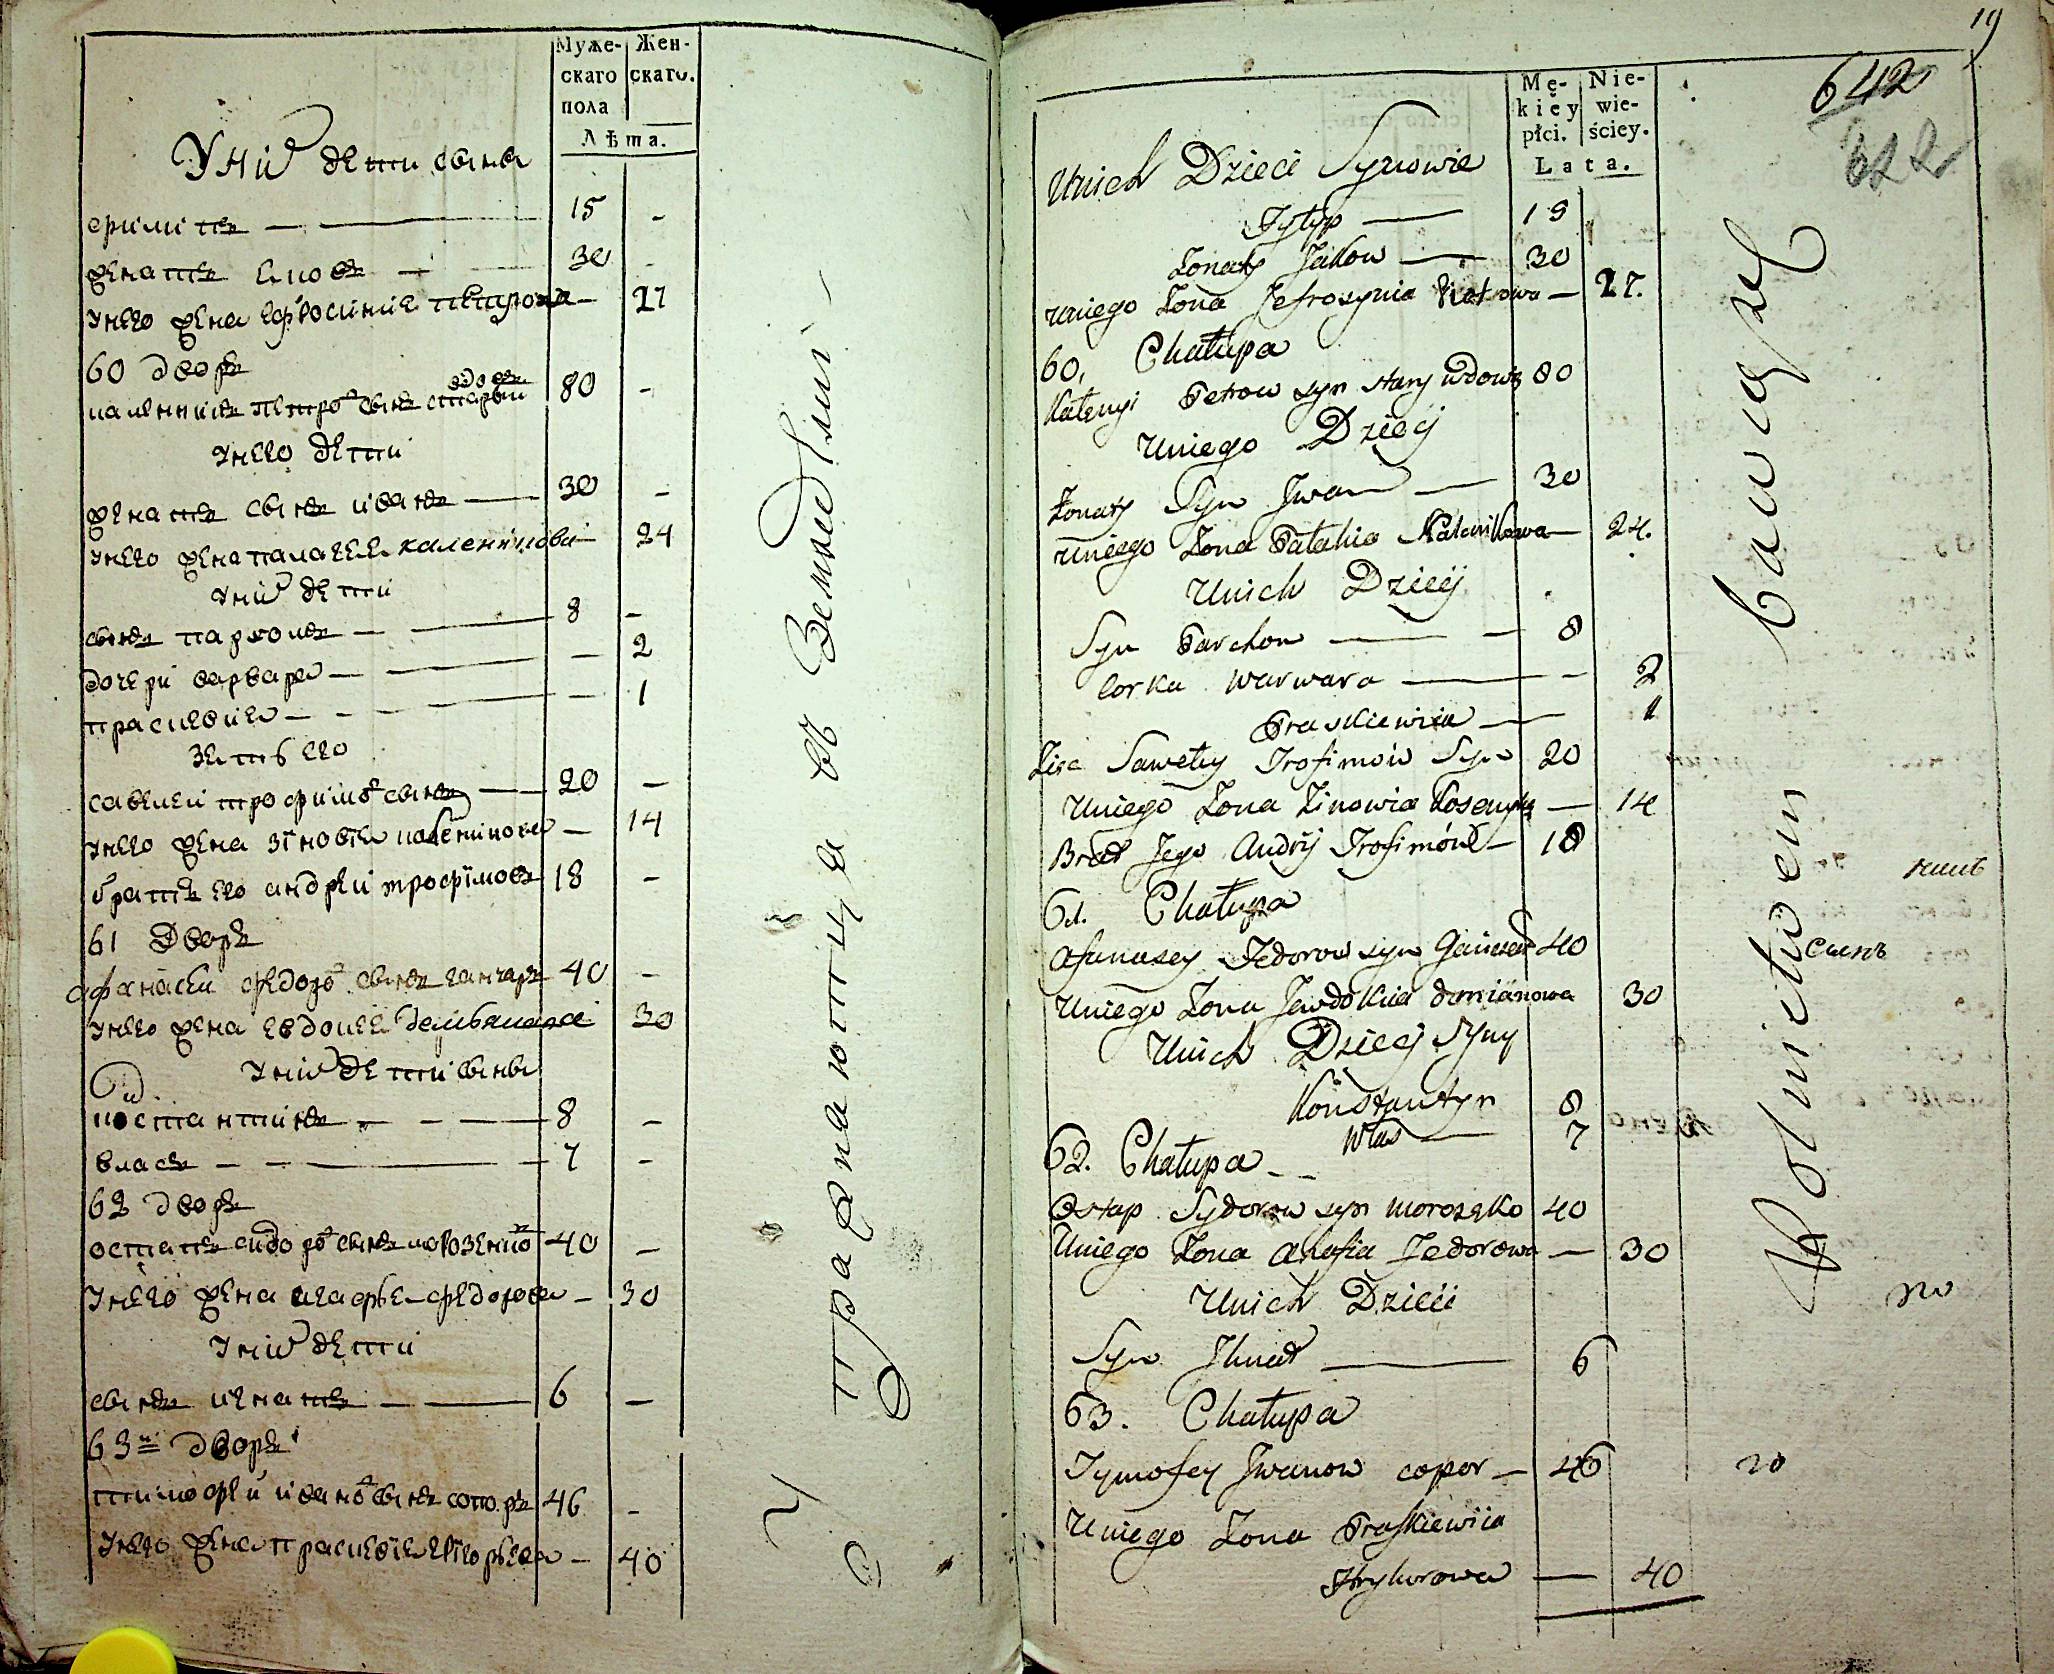 Муже-
скаго
пола
Жен-
скаго.
Лѣта.
У них дети сыны
15 -
женатъ Яковъ — 30 -
у него жена Ефросиния Петрова — 27
60 дворъ
Калений Петровъ сынъ старый вдовъ 80 -
у него дети
женатъ сынъ Иванъ — 30 -
у него жена Палагея каленикова — 24
у них дети
сынъ Пархомъ — 8 -
дочери Варвара — - 2
Прасковия — - 1
зять его
Савелей Трофимовъ сынъ — 20 -
у него жена Зѣновия — 14
братъ его Андрей Трофимовъ 18 -
61 дворъ
Афанасей Федоровъ сынъ ганчаръ 40 -
у него жена Евдокея Демьянова 30
у них дети сыны
Костантинъ — 8 -
Власъ — 7 -
62 дворъ
Остапъ Сидоровъ сынъ Морозенко 40 -
у него жена Агафья Федорова — 30
у них дети
сынъ Игнатъ — 6 -
63й дворъ
Тимофей Ивановъ сынъ сопоръ 46 -
у него жена Прасковия Григорьева — 40
Упражнаютца въ Земледѣлии
19
642
622
Mę-
kiey
płci.
Nie-
wieściey.
Lata.
Unich Dzieci Synowie
— 15
Żonaty Jakow — 30
uniego Żona Jefrosynia Piotrowa — 27.
60, Chałupa
Kałenyi Petrow syn stary wdowy 80
Uniego Dziecj
Żonaty Syn Jwan — 30
uniego Żona Pałahia Kalenikowa — 24.
Unich Dziecij
Syn Parchom — 8
Corka Warwara — 2
Praskiewiia — 1
Zięc Sawełey Trofimow Syn 20
Uniego Żona Zinowia — 14
Brat Jego Andrij Trofimów — 18
61. Chałupa
Afanasey Fedorow syn Ganczar 40
Uniego Żona Jewdokiia demianowa 30
Unich Dziecj Syny
Konstantyn 8
Włas — 7
62. Chałupa
Ostap Sydorow syn Morozęko 40
Uniego Żona Ahafia Fedorowa — 30
Unich Dziecii
Syn Jhnat — 6
63. Chałupa
Tymofey Jwanow copor — 46
Uniego Żona Praskiewiia
Hryhorowa — 40
Rolnictwem bawią się
сынъ